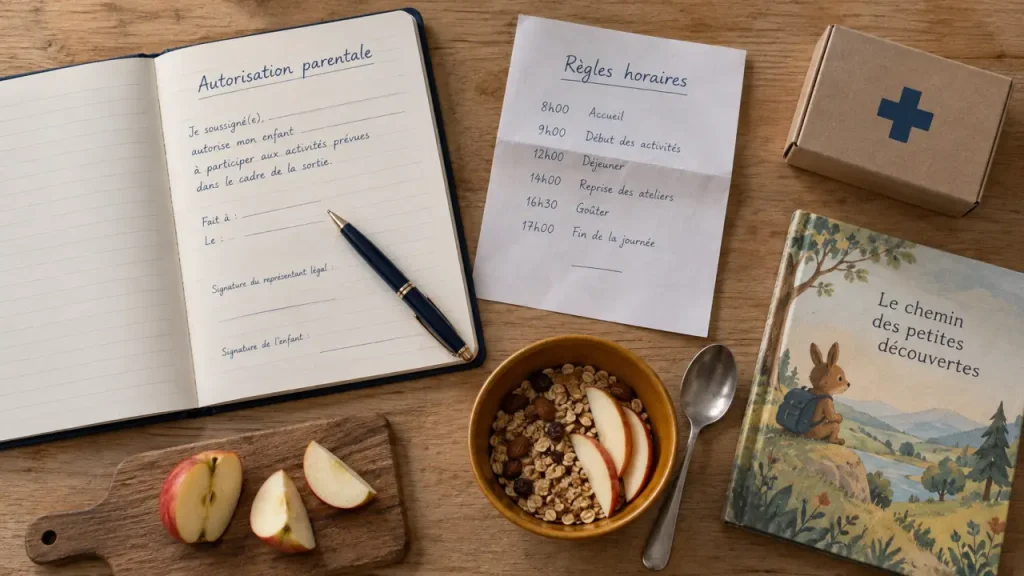 Autorisation parentale
Je soussigné(e),
autorise mon enfant
à participer aux activités prévues
dans le cadre de la sortie.
Fait à :
Le :
Signature du représentant légal :
Signature de l'enfant :
Règles horaires
8h00 Accueil
9h00 Début des activités
12h00 Déjeuner
14h00 Reprise des ateliers
16h30 Goûter
17h00 Fin de la journée
Le chemin
des petites
découvertes